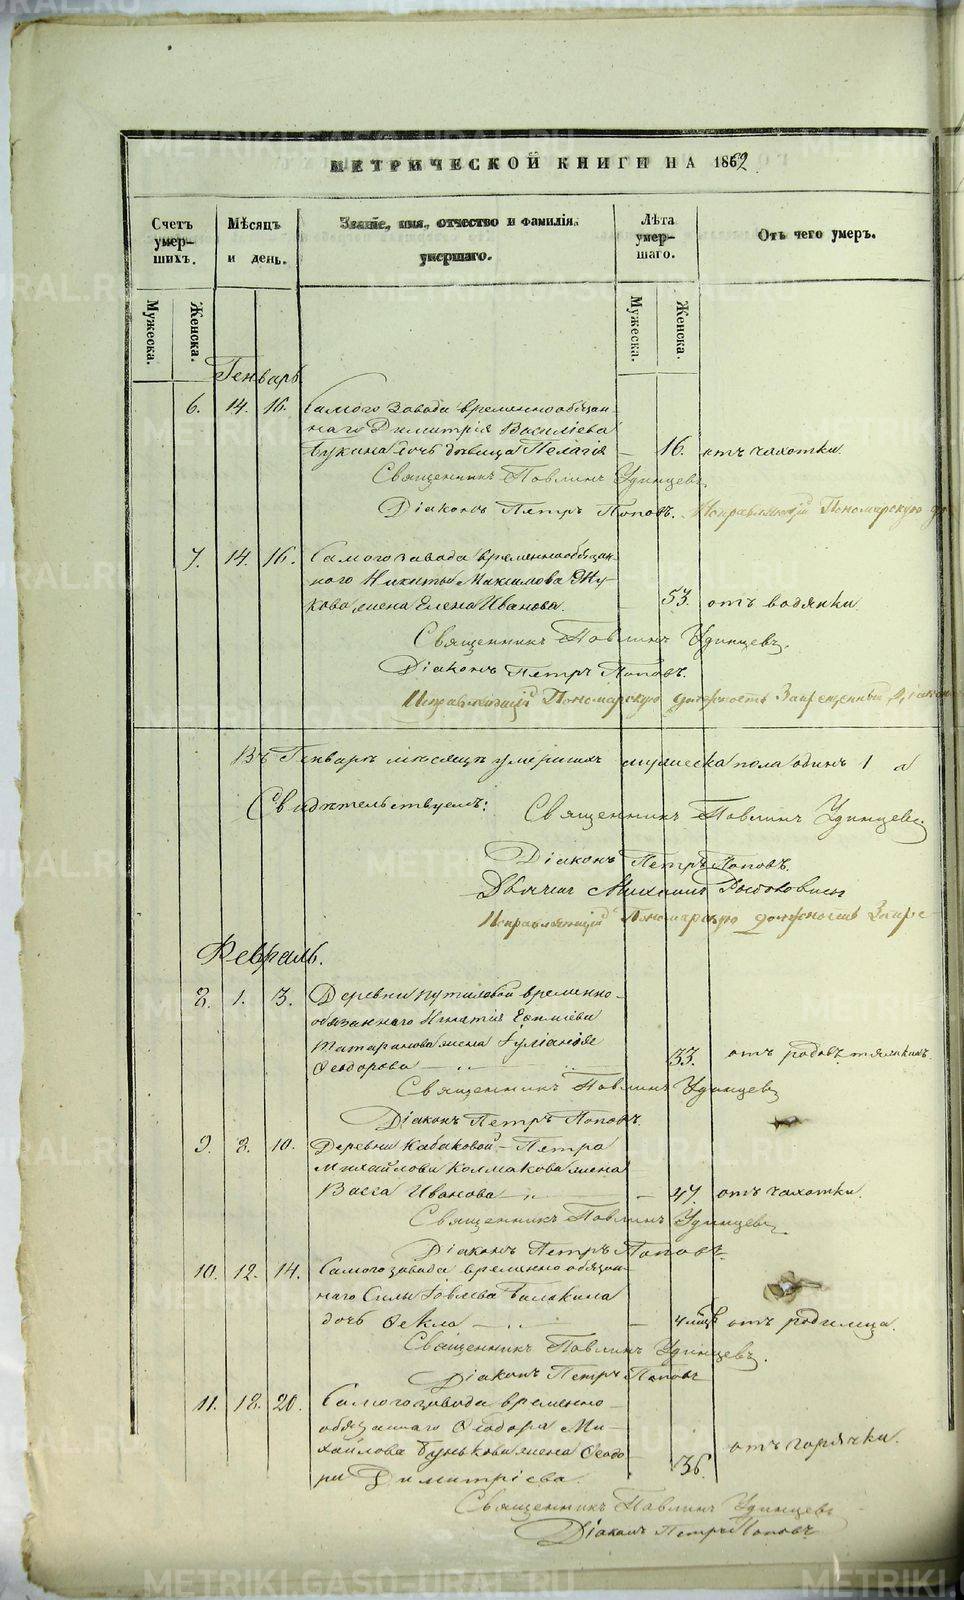 МЕТРИЧЕСКОЙ КНИГИ НА 1862
Счетъ умер-шихъ.
Мѣсяцъ и день.
Званіе, имя, отчество и фамилія умершаго.
Лѣта умер-шаго.
Отъ чего умеръ.
Мужеска. Женска. Мужеска. Женска.
Генварь.
6. 14. 16. Самого завода временнообязан-
наго Димитрія Василіева
Букина дочь дѣвица Пелагія – 16. отъ чахотки.
Священникъ Павлинъ Удинцевъ
Діаконъ Петръ Поповъ. Исправляющій Пономарскую до
7. 14. 16. Самого завода временнообязан-
ного Никиты Максимова Жу-
кова жена Елена Иванова. – 53. отъ водянки
Священникъ Павлинъ Удинцевъ.
Діаконъ Петръ Поповъ.
Исправляющій Пономарскую должность Запрещенный Діаконъ
Въ Генварѣ мѣсяцѣ умершихъ мужеска пола одинъ 1 а
Свидѣтельствуемъ: Священникъ Павлинъ Удинцевъ.
Діаконъ Петръ Поповъ.
Дьячекъ Михаилъ
Исправляющій Пономарскую должность Запре-
Февраль.
8. 1. 3. Деревни Путиловой временно-
обязаннаго Игнатія Евфиміева
Татаринова жена Іуліанія
Феодорова – „ – 33. отъ родовъ тяжкихъ.
Священникъ Павлинъ Удинцевъ
Діаконъ Петръ Поповъ.
9. 8. 10. Деревни Кабаковой – Петра
Михайлова Колмакова жена
Васса Иванова – „ – 47. отъ чахотки.
Священникъ Павлинъ Удинцевъ
Діаконъ Петръ Поповъ.
10. 12. 14. Самого завода временнообязан-
наго Силы Іовлева Балакина
дочь Фекла – „ – 4 мѣсяц отъ родимца.
Священникъ Павлинъ Удинцевъ.
Діаконъ Петръ Поповъ
11. 18. 20. Самого завода временно-
обязаннаго Феодора Ми-
хайлова Бунькова жена Феодо-
ра Димитріева. 36. отъ горячки.
Священникъ Павлинъ Удинцевъ
Діаконъ Петръ Поповъ.
METRIKI.GASO-URAL.RU